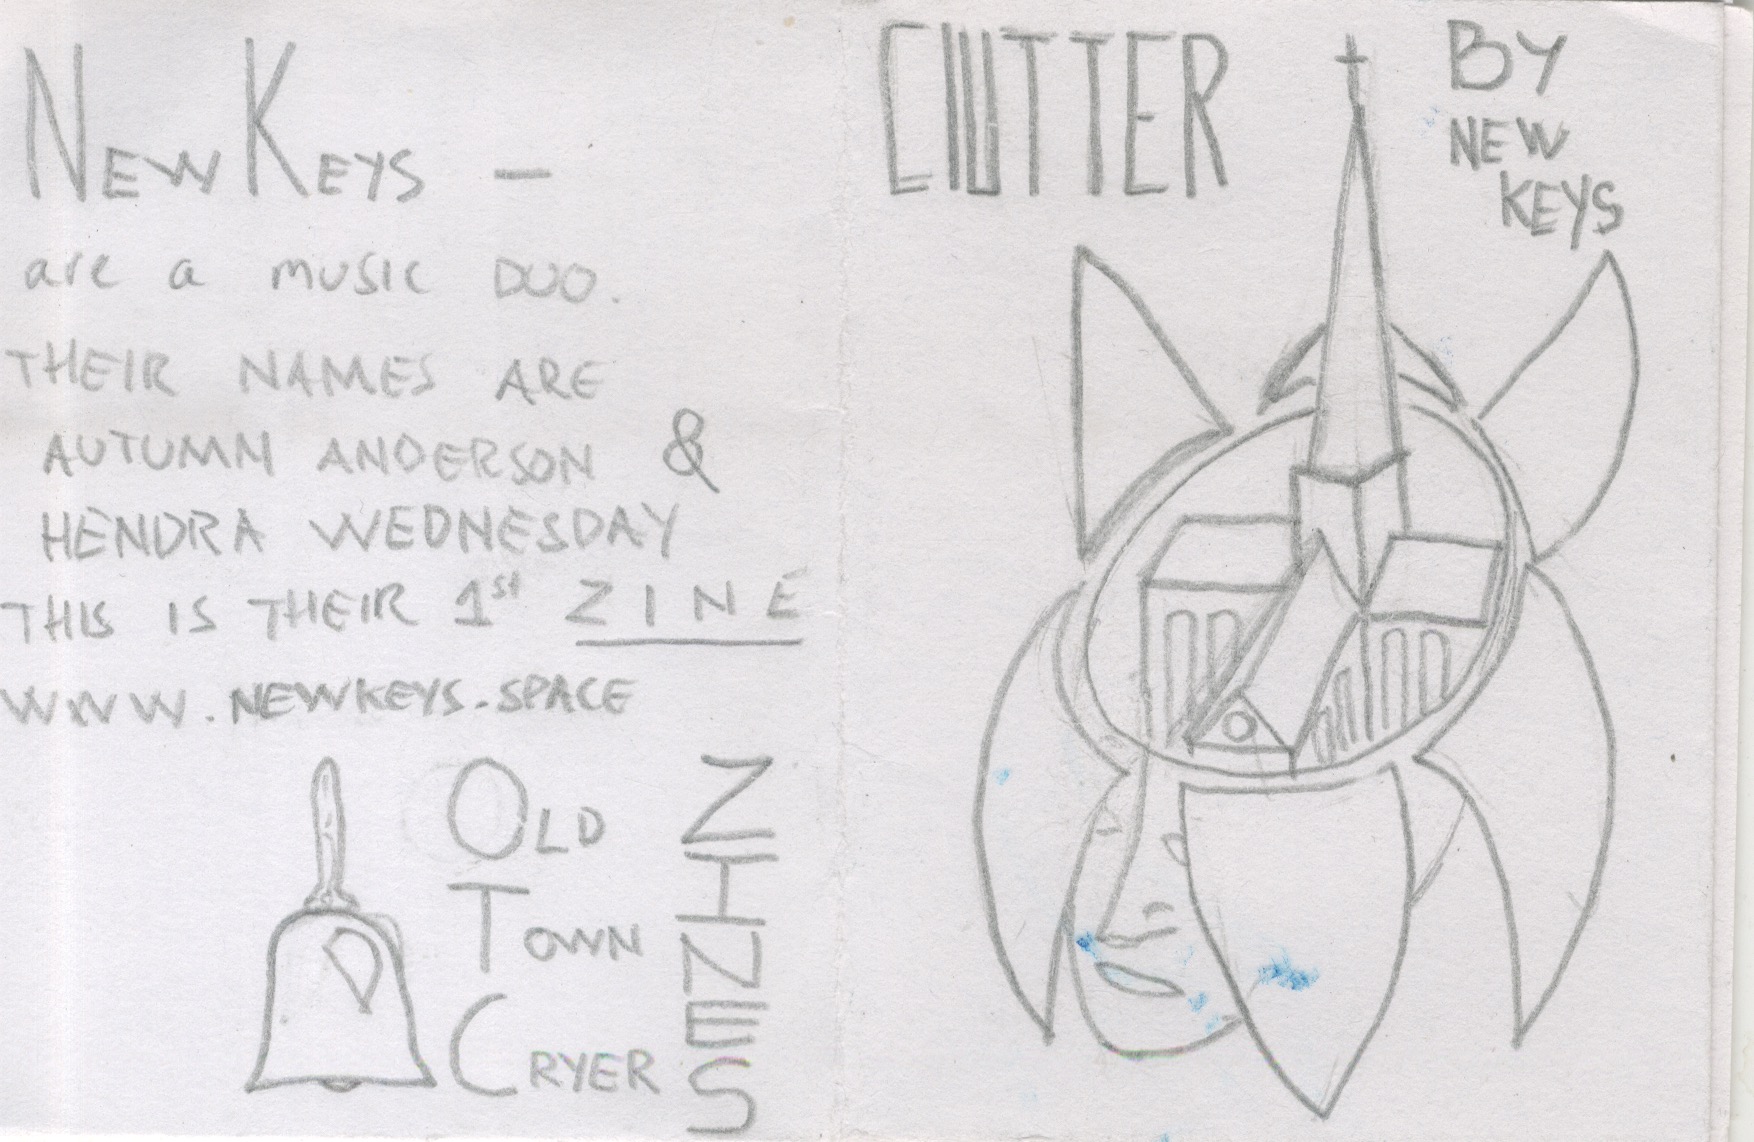 NEW KEYS –
are a music DUO.
THEIR NAMES ARE
AUTUMN ANDERSON &
HENDRA WEDNESDAY
THIS IS THEIR 1st ZINE
WWW.NEWKEYS.SPACE
OLD
TOWN
CRYER
ZINES
CLUTTER
BY
NEW
KEYS